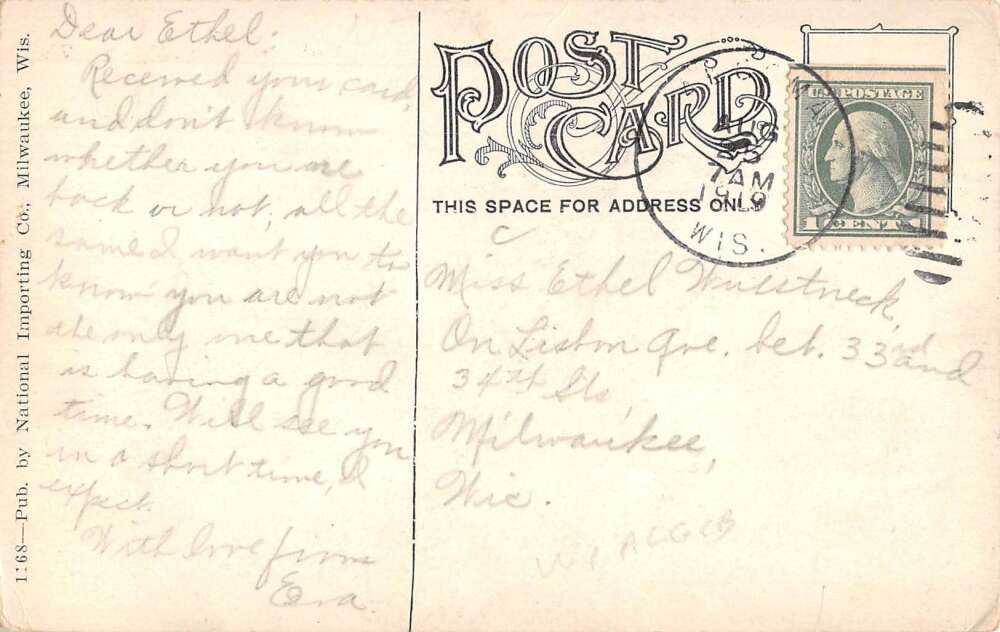 Dear Ethel:
Received your card,
and don't know
whether you are
back or not, all the
same I want you to
know you are not
the only one that
is having a good
time. Will see you
in a short time, I
expect.
With love from
Eva.
1168—Pub. by National Importing Co., Milwaukee, Wis.
POST CARD
THIS SPACE FOR ADDRESS ONLY
AUG
7 AM
1919
WIS.
U.S. POSTAGE
1 CENT 1
Miss Ethel Wuestneck,
On Lisbon Ave. bet. 33rd and
34th Sts,
Milwaukee,
Wis.